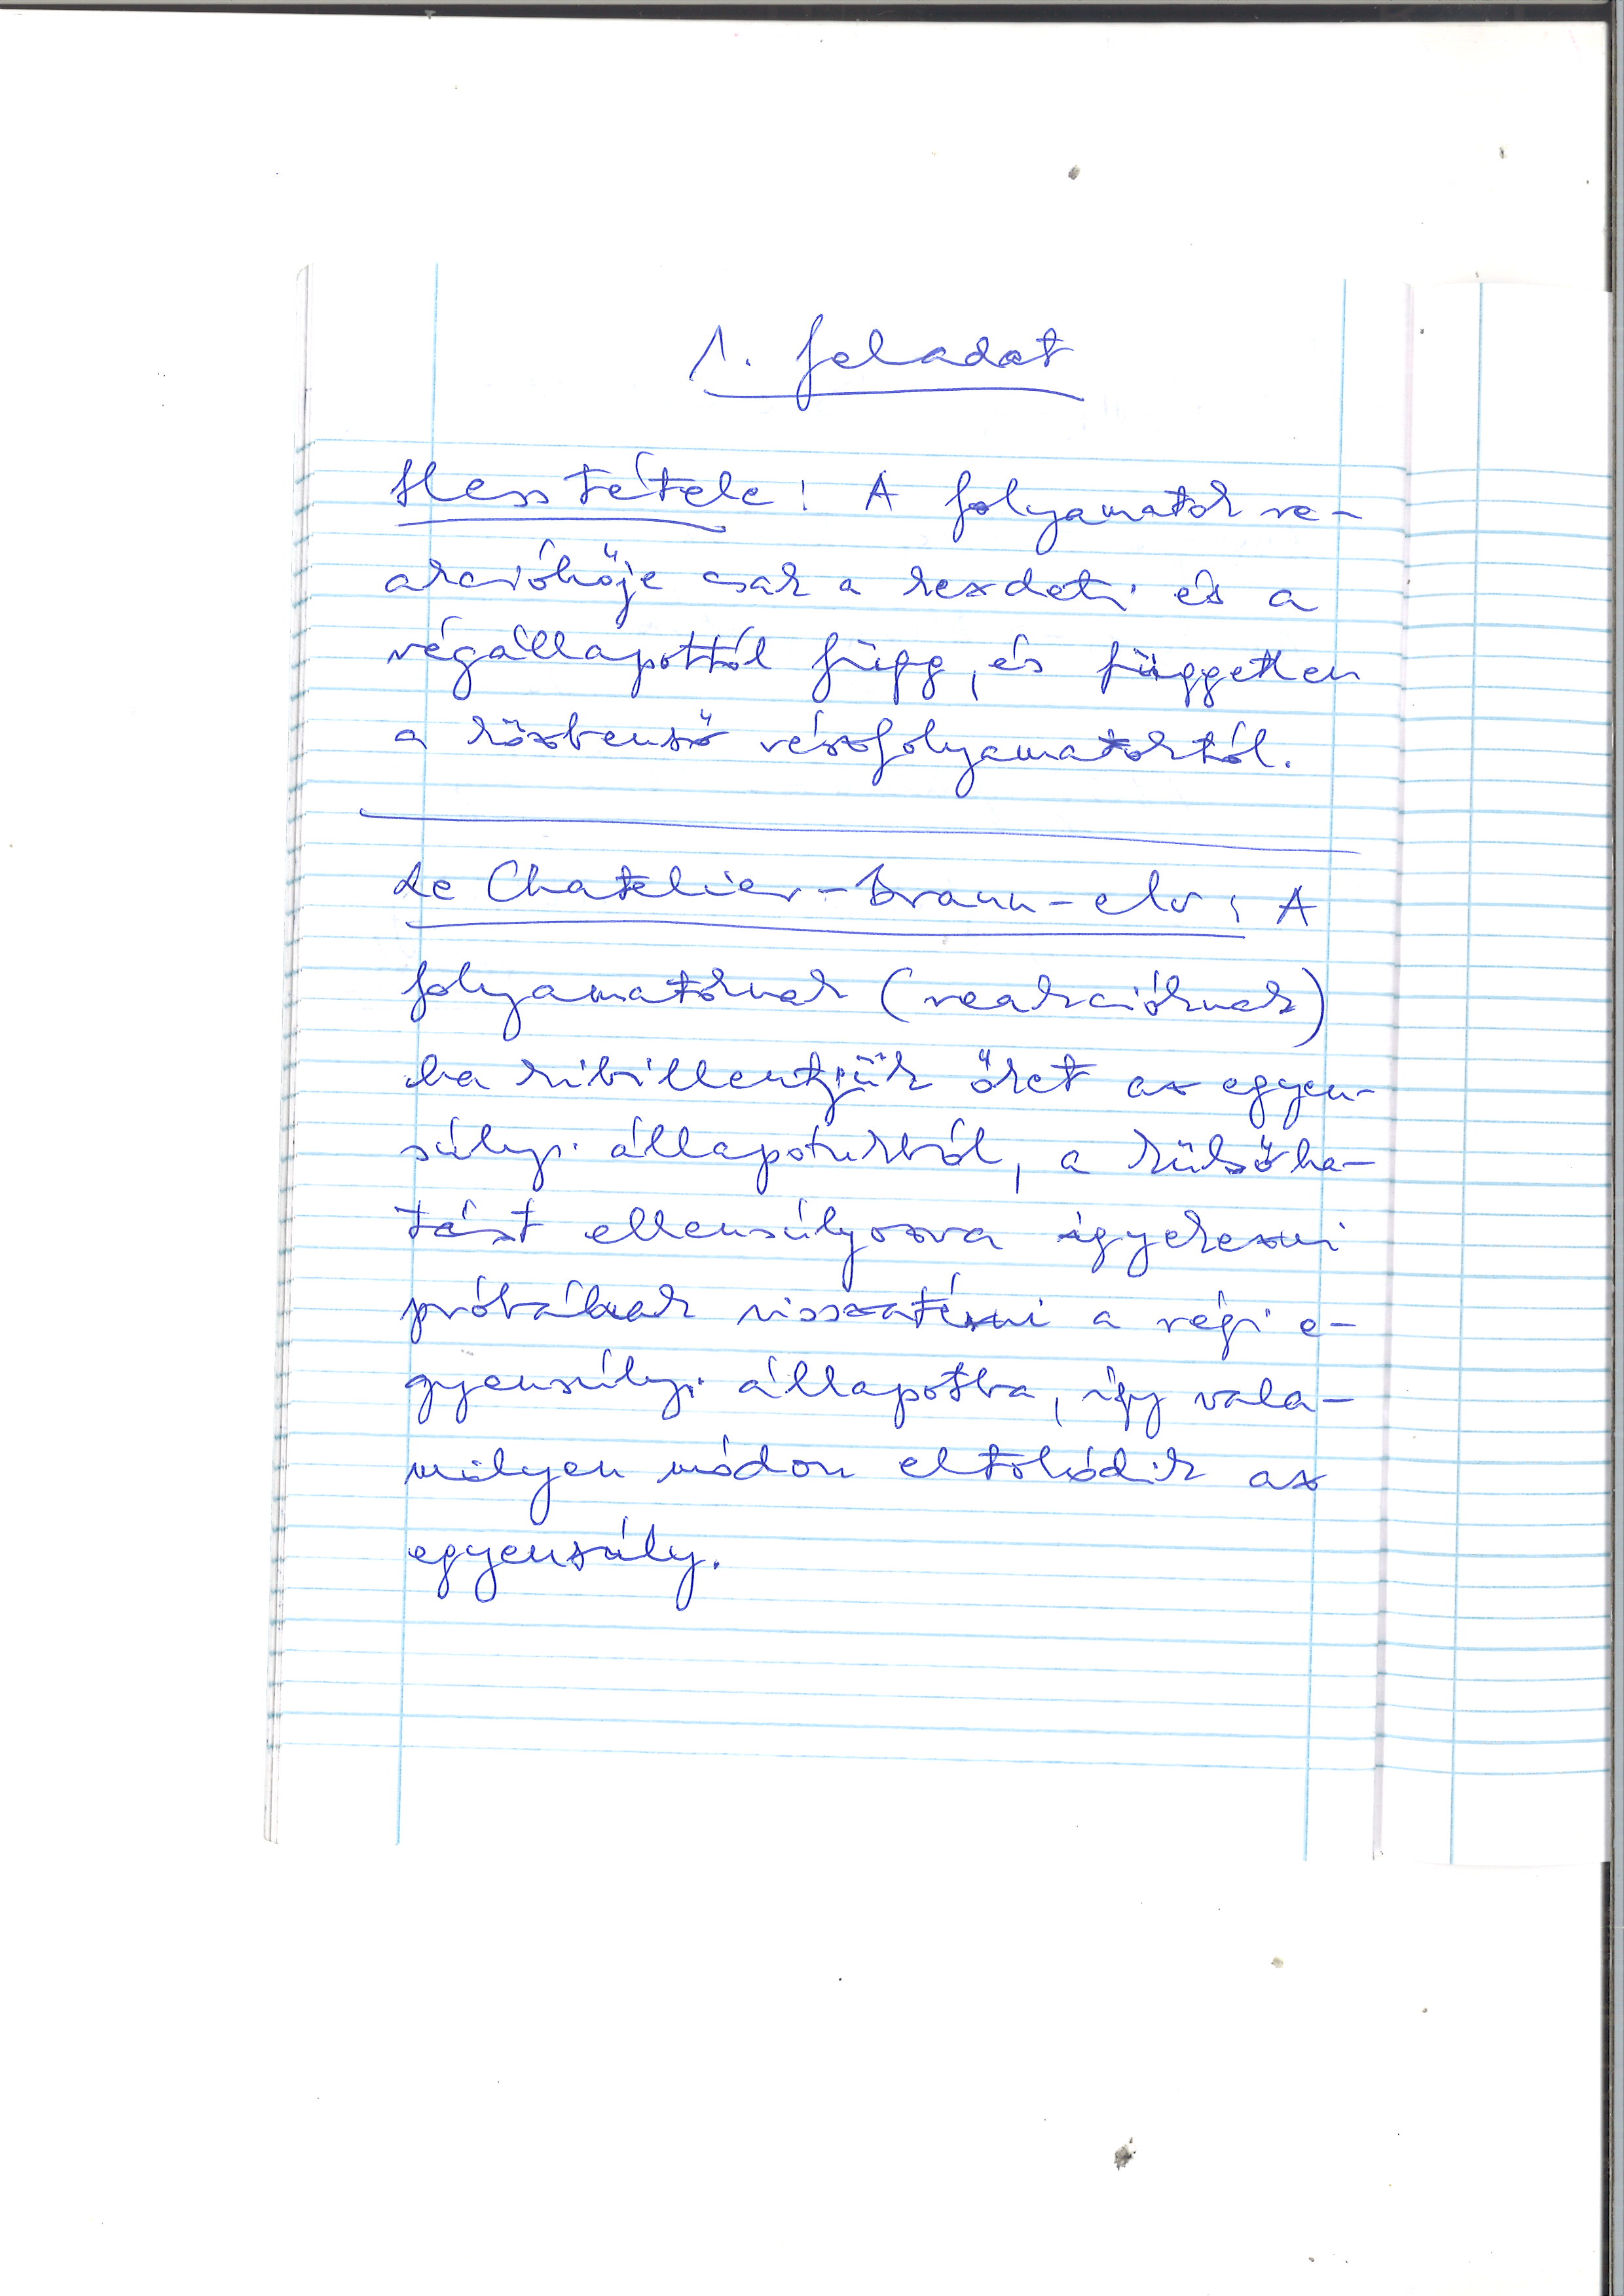 1. feladat
Hess tétele: A folyamatok re-
akcióhője csak a kezdeti és a
végállapottól függ, és független
a közbenső részfolyamatoktól.
Le Chatelier-Braun-elv: A
folyamatoknak (reakcióknak)
ha kibillentjük őket az egyen-
súlyi állapotukból, a külső ha-
tást ellensúlyozva igyekezni
próbálnak visszatérni a régi e-
gyensúlyi állapotba, így vala-
milyen módon eltolódik az
egyensúly.